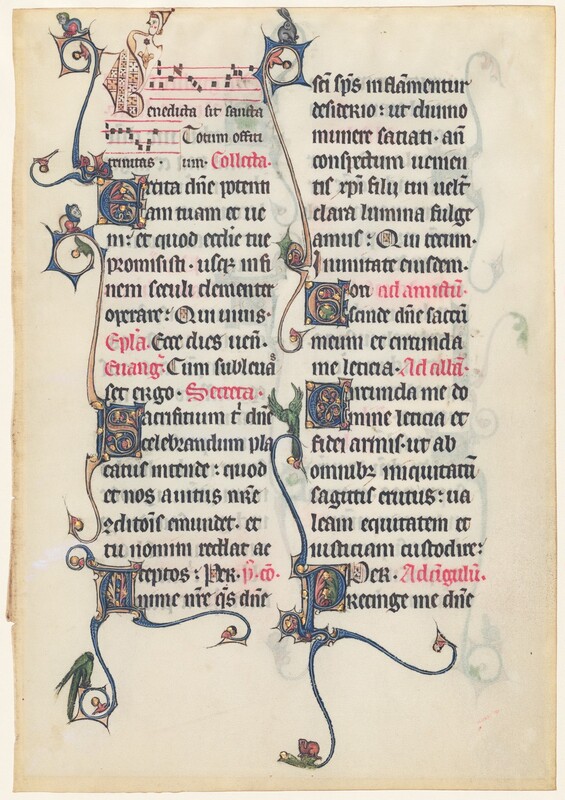 enedicta sit sancta
Totum offici
trinitas · um· Collecta·
xcita dn̄e potenti
am tuam et ue
ni: et quod ecclīe tue
promisisti· usqꝫ in fi
nem seculi clementer
operare: Qui uiuis·
Epl̄a· Ecce dies ueni̅·
Euang̅· Cum subleuas
set ergo· Secreta·
acrificium t̅ dn̄e
celebrandum pla
catus intende: quod
et nos a uitiis nr̄e
ꝯditōis emundet· et
tuo nomini reddat ac
ceptos: Per· p̅· cō·
nime nr̄e qs̄ dn̄e
sc̄i sp̄s inflāmentur
desiderio: ut diuino
munere satiati· an̄
conspectum uenien
tis xp̄i filii tui uelut
clara lumina fulge
amus: Qui tecum·
in unitate eiusdem·
Or̄o ad amictū·
scande dn̄e sactū
meum et circunda
me leticia· Ad albā·
ircunda me do
mine leticia et
fidei armis· ut ab
omnibꝫ iniquitatū
sagittis erutus: ua
leam equitatem et
iusticiam custodire:
Per· Ad cīgulū·
Precinge me dn̄e